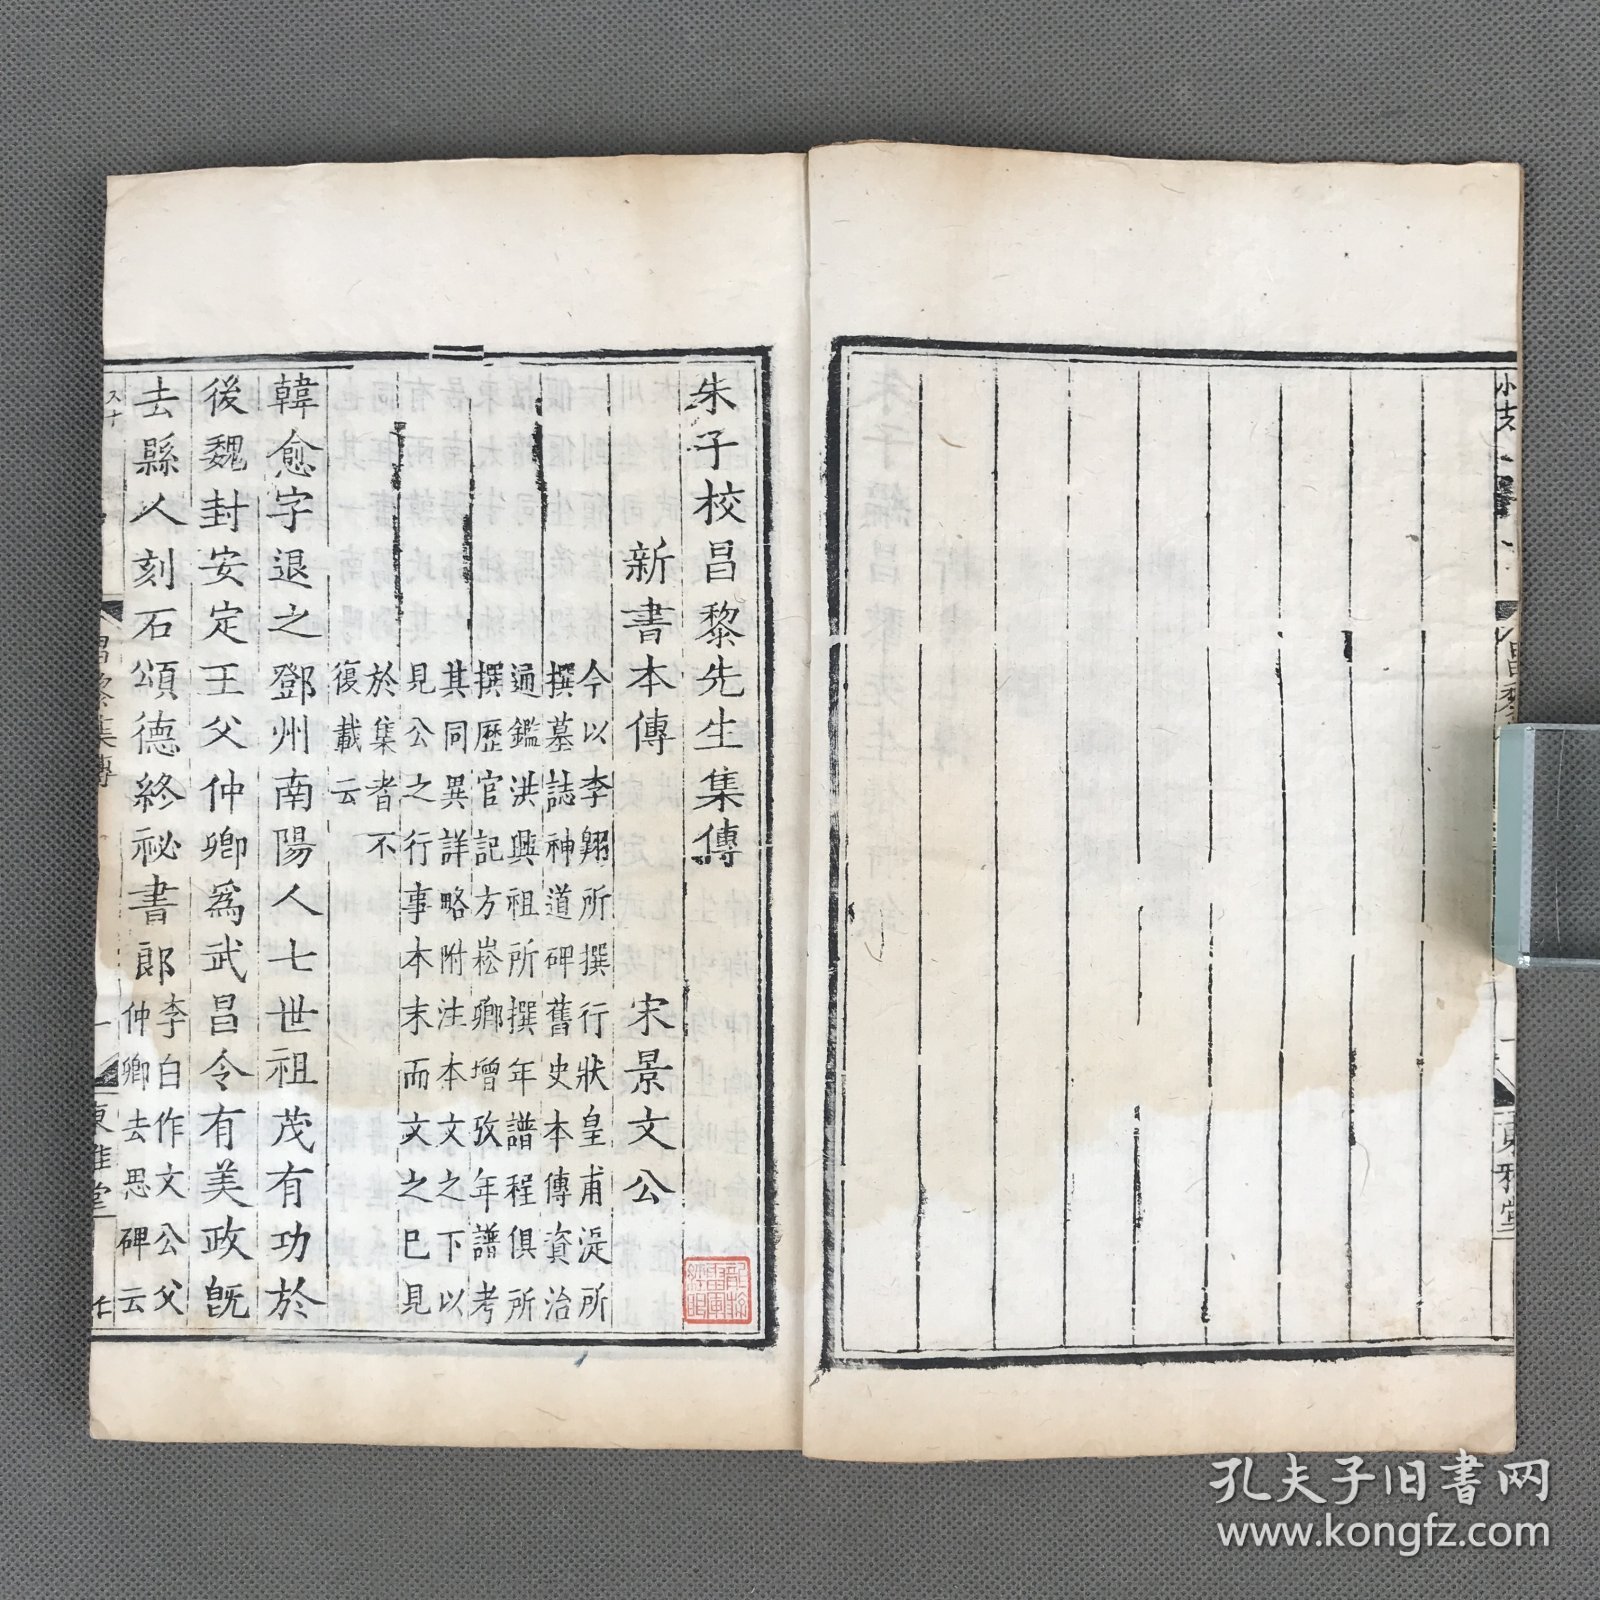 朱子校昌黎先生集傳
新書本傳 宋景文公
今以李翱所撰行狀皇甫湜所
撰墓誌神道碑舊史本傳資治
通鑑洪興祖所撰年譜程俱所
撰歷官記方崧卿增攷年譜考
其同異詳略附注本文之下以
見公之行事本末而文之已見
於集者不
復載云
韓愈字退之鄧州南陽人七世祖茂有功於
後魏封安定王父仲卿爲武昌令有美政旣
去縣人刻石頌德終祕書郎
李白作文公父
仲卿去思碑云
昌黎集傳
一
東雅堂
東雅堂
孔夫子旧书网
www.kongfz.com